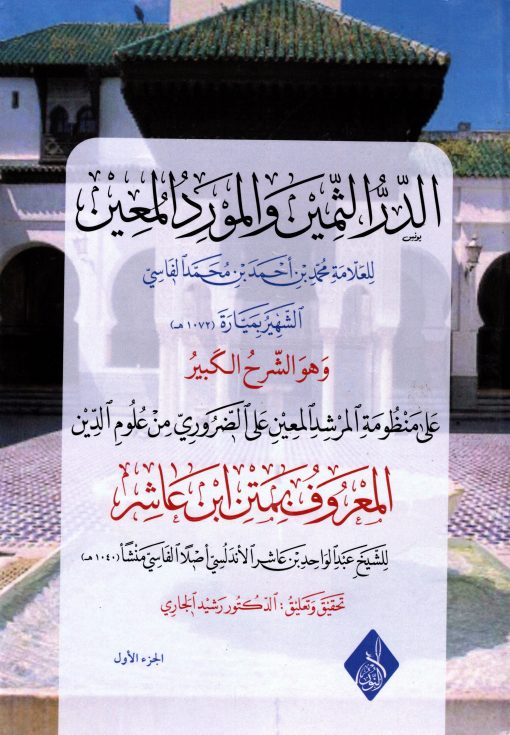 الدُّرُّ الثَّمِين وَالمَوْرِدُ المُعِيْن
يونس
لِلعَلّامَةِ مُحَمَّدِ بْنِ أَحْمَدَ بْنِ مُحَمَّدٍ الفَاسِيّ
الشَّهِيْرُ بِمَيَّارَةَ (١٠٧٢ هـ)
وَهوَ الشَّرحُ الكَبِيرُ
عَلَى مَنْظُومَةِ المُرشِدِ المعِينِ عَلَى الضَّرُورِيِّ مِنْ عُلُومِ الدِّيْن
المَعْرُوفُ بِمَتنِ ابنِ عَاشِر
لِلشَّيخِ عَبدِ الوَاحِدِ بن عَاشرٍ الأندلُسِيّ أَصْلًا الفَاسِيّ مَنْشَأً (١٠٤٠ هـ)
تحقِيق وَتعليق : الدّكتُور رَشِيد الجَارِي
الجزء الأول
النور